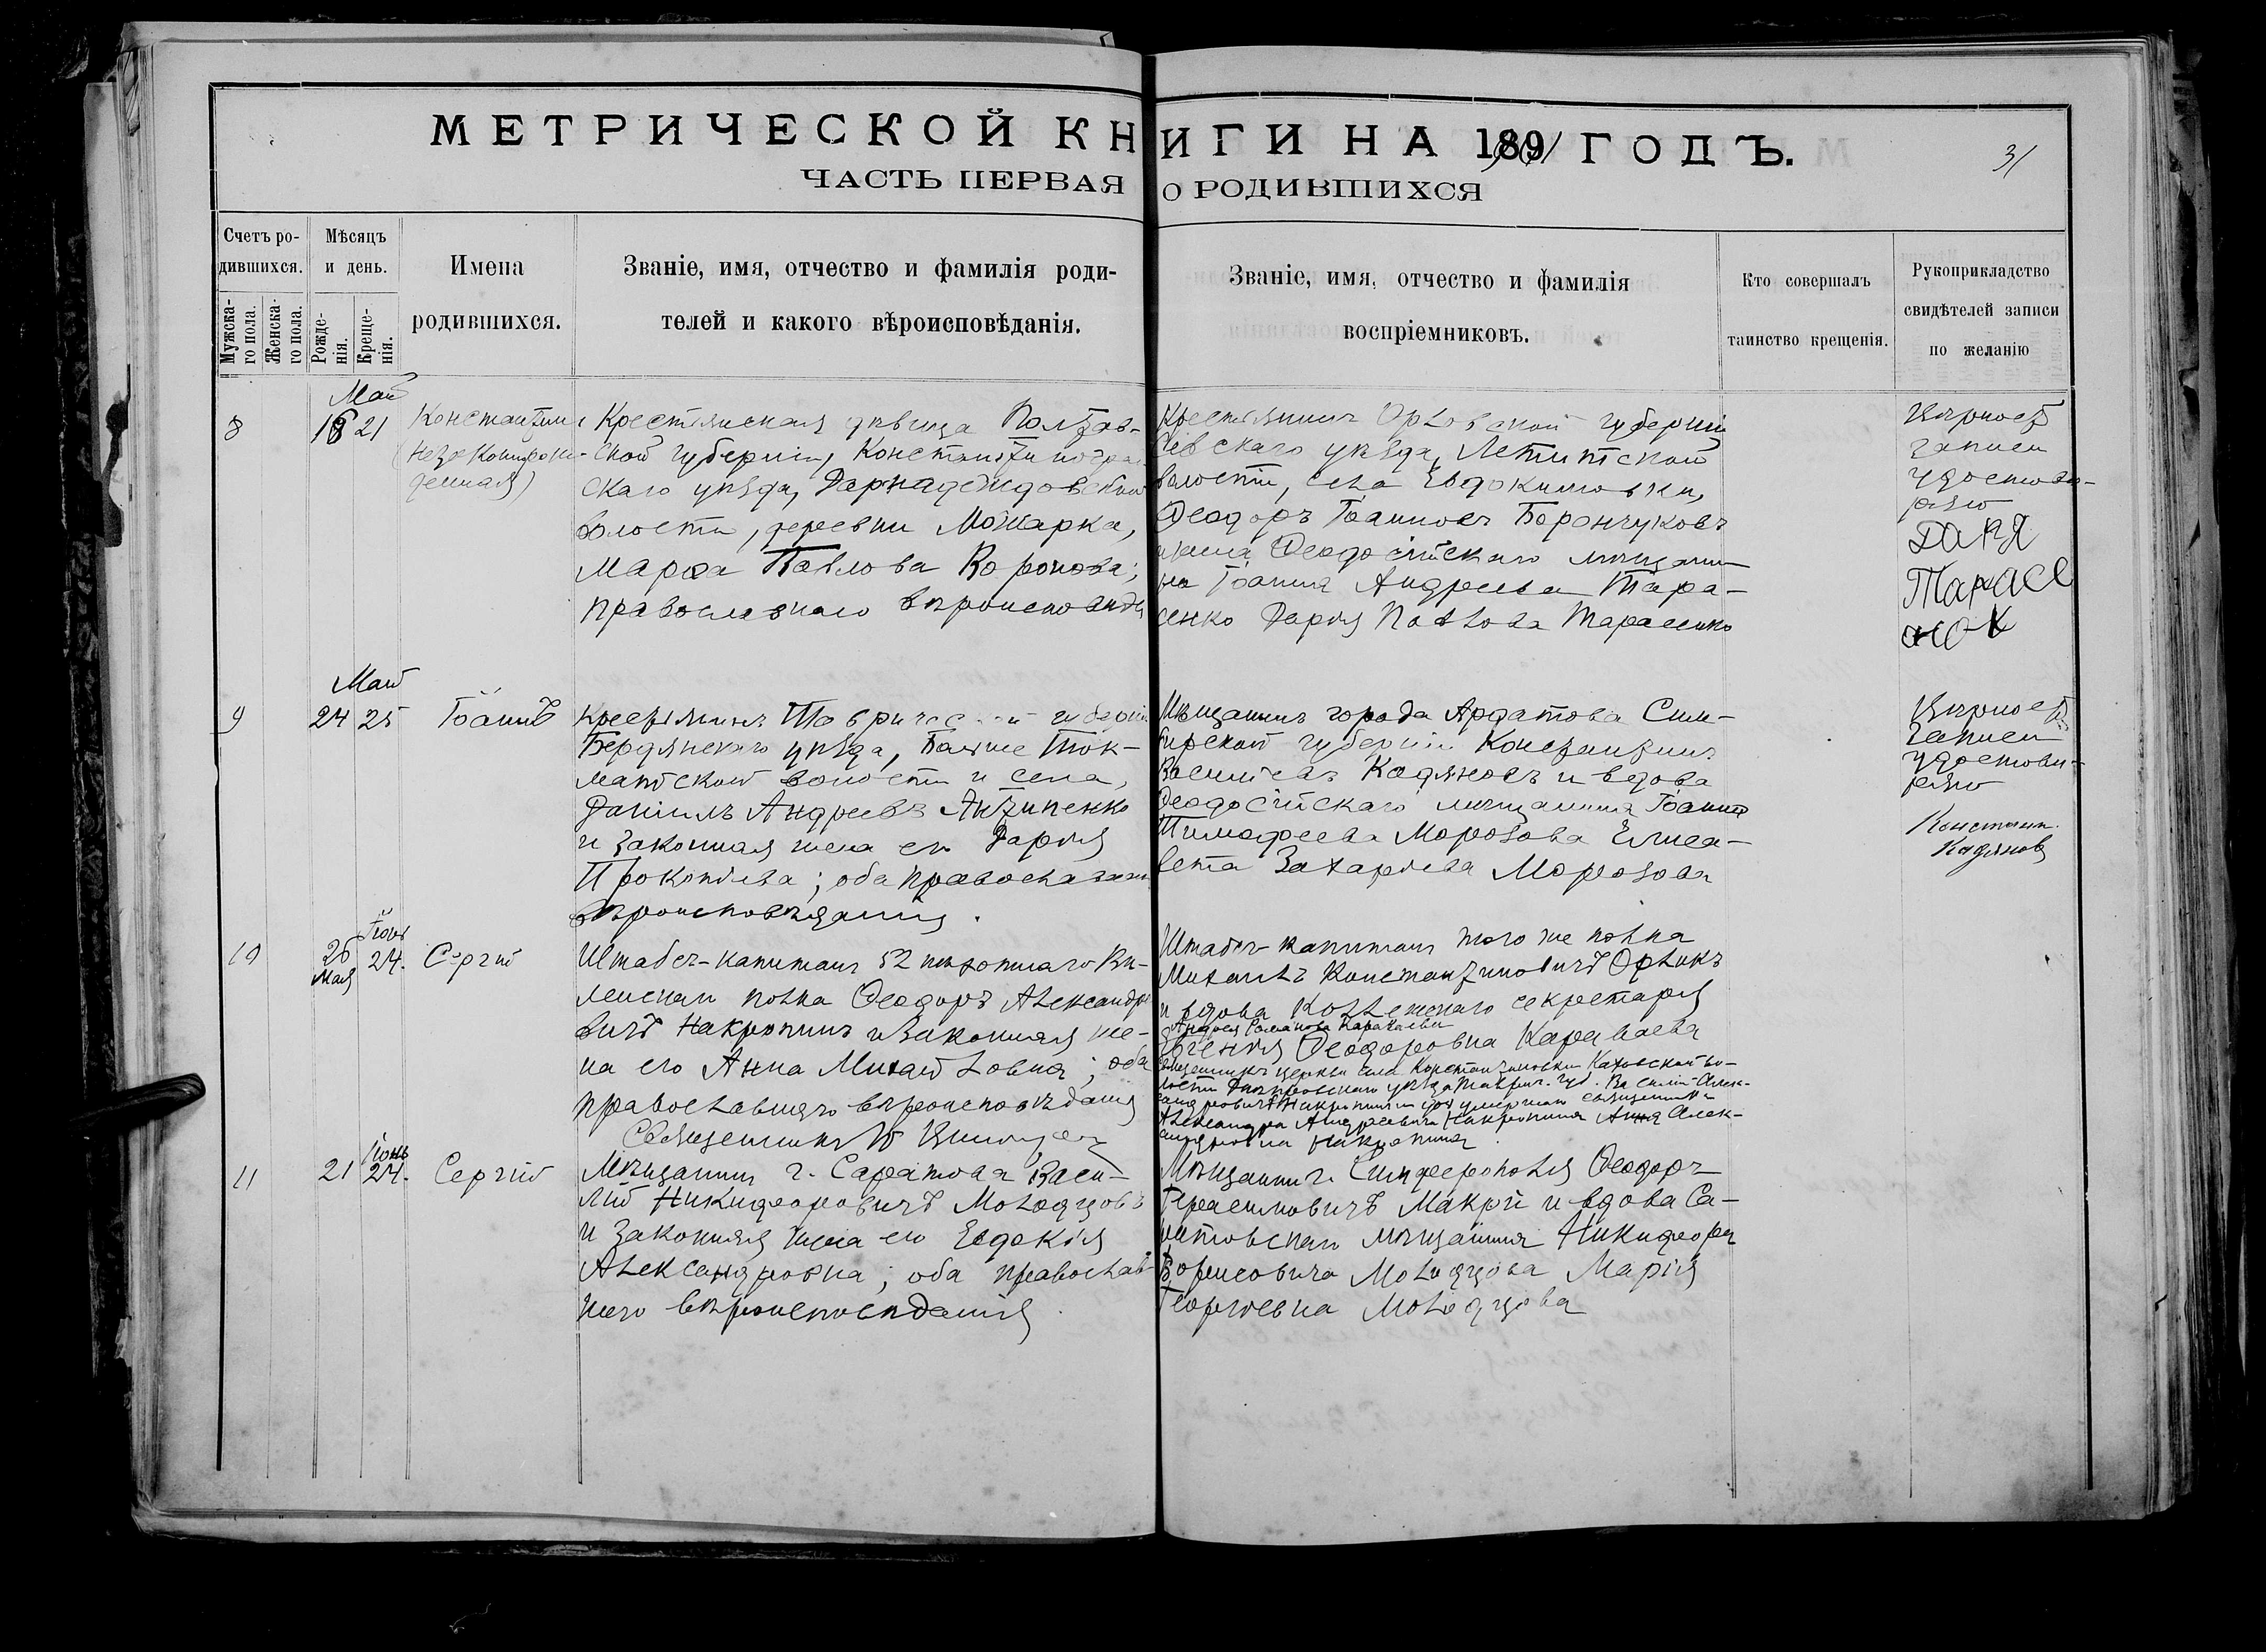 МЕТРИЧЕСКОЙ КНИГИ НА 1891 ГОДЪ.
31
ЧАСТЬ ПЕРВАЯ О РОДИВШИХСЯ
Счетъ ро-
дившихся.
Мужска-
го пола.
Женска-
го пола.
Мѣсяцъ
и день.
Рожде-
нія.
Креще-
нія.
Имена
родившихся.
Званіе, имя, отчество и фамилія роди-
телей и какого вѣроисповѣданія.
Званіе, имя, отчество и фамилія
воспріемниковъ.
Кто совершалъ
таинство крещенія.
Рукоприкладство
свидѣтелей записи
по желанію
Май
8
18 21
Константинъ
(незаконнорож-
денная)
Крестьянская дѣвица Полтав-
ской губерніи, Константиноград-
скаго уѣзда, Дарнадеждовской
волости, деревни Можарка,
Марѳа Павлова Воронова;
православнаго вѣроисповѣд
Крестьянинъ Орловской губерніи
Сѣвскаго уѣзда,
волости, села Евдокимовки,
Ѳеодоръ Іоанновъ Боренчуковъ
и жена Ѳеодосійскаго мѣщани-
на Іоанна Андреева Тара-
сенко Дарія Павлова Тарасенко
Вѣрность
записи
удостовѣ-
ряю
ДАРЯ
Тарасе
нок
Май
9
24 25
Іоаннъ
Крестьянинъ Таврической губерніи
Бердянскаго уѣзда, Больше Ток-
матской волости и села,
Даніилъ Андреевъ Антипенко
и законная жена его Дарія
Прокопіева; оба православнаго
вѣроисповѣданія.
Мѣщанинъ города Ардатова Сим-
бирской губерніи Константинъ
Васильевъ Кадяновъ и вдова
Ѳеодосійскаго мѣщанина Іоанна
Тимоѳеева Морозова Елиса-
вета Захаріева Морозова
Вѣрность
записи
удостовѣ-
ряю
Констант.
Кадянов
10
26
Мая
Іюнь
24.
Сергій
Штабсъ-капитанъ 52 пѣхотнаго Ви-
ленскаго полка Ѳеодоръ Александро-
вичъ Накропинъ и законная же-
на его Анна Михайловна; оба
православнаго вѣроисповѣданія
Священникъ
Штабсъ-капитанъ того же полка
Михаилъ Константиновичъ Орликъ
и вдова Коллежскаго секретаря
Андрея Романова Караваева
Евгенія Ѳеодоровна Караваева
Священникъ церкви села Константиновки Каховской во-
лости Днѣпровскаго уѣзда Таврич. губ. Василій Алек-
сандровичъ Накропинъ и дочь умершаго священника
Александра Андреевича Накропина Анна Алек-
сандровна Накропина.
11
21
Іюнь
24.
Сергій
Мѣщанинъ г. Саратова Васи-
лій Никифоровичъ Молодцовъ
и законная жена его Евдокія
Александровна; оба православ-
наго вѣроисповѣданія.
Мѣщанин г. Симферополя Ѳеодоръ
Герасимовичъ Макрій и вдова Са-
ратовскаго мѣщанина Никифора
Борисовича Молодцова Марія
Георгіевна Молодцова